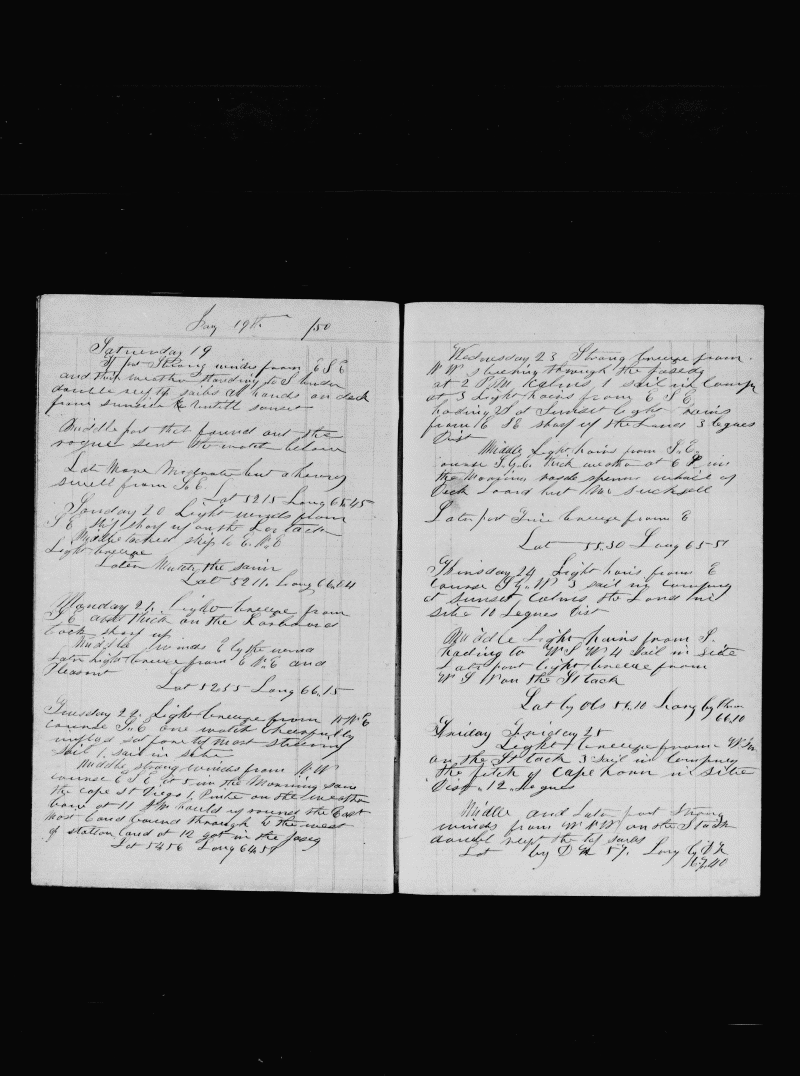 Jany 19th /50
Saturday 19
first Strong winds from E S E
and thick weather standing to S under
double reeft sails all hands on deck
from sunrise untill sunset
Middle part that found out the
rogue sent the watch below
Later More Moderate but a heavy
swell from S.E.
Lat 5215 Long 65.45
Sunday 20 Light winds from
S E ship sharp up on the Lar tack
Middle tacked ship to E.N.E
Light breeze
Later Much the same
Lat 5211 Long 66.04
Monday 21. Light breeze from
S E and thick on the Larboard
tack sharp up
Middle winds E by the wind
Later light breeze from E N.E and
Pleasant
Lat 5255 Long 66.15
Tuesday 22. Light breeze from N N E
course S.E one watch
sail 1 sail in site
Middle strong winds from N.W
course E S E at 5 in the Morning saw
the cape St Diego 1 on the weather
bow at 11 A M hauld up round the East
most Land bound through to the west
of statton Land at 12 got in the paseg
Lat 5456 Long 64.57
Wednesday 23 Strong breeze from
N W steering through the paseg
at 2 P.M Calms, 1 sail in Compy
at 3 Light hairs from E S E
hading S at Sunset light hairs
from E S E sharp of the Land 3 legues
Dist
Middle Light hairs from S.E
course thick weather at 6 in
the Morning
Later part Fine breeze from E
Lat 55.30 Long 65-51
Thursday 24 Light hairs from E
Course S.W 3 sail in company
at Sunset, Calms the Land in
site 10 Legues Dist
Middle Light hairs from S.
hading to W S W 4 Sail in site
Later part light breeze from
W S W on the St tack
Lat by Obs 56.10 Long by
66.10
Friday Friday 25
Light breeze from
on the St tack 3 sail in Company
the pitch of Cape hoorn in site
Dist. 12 Legues
Middle and Later part Strong
winds from W N W on the S tack
doubel reeft the top sails
Lat by D R 57. Long by D R
67.40